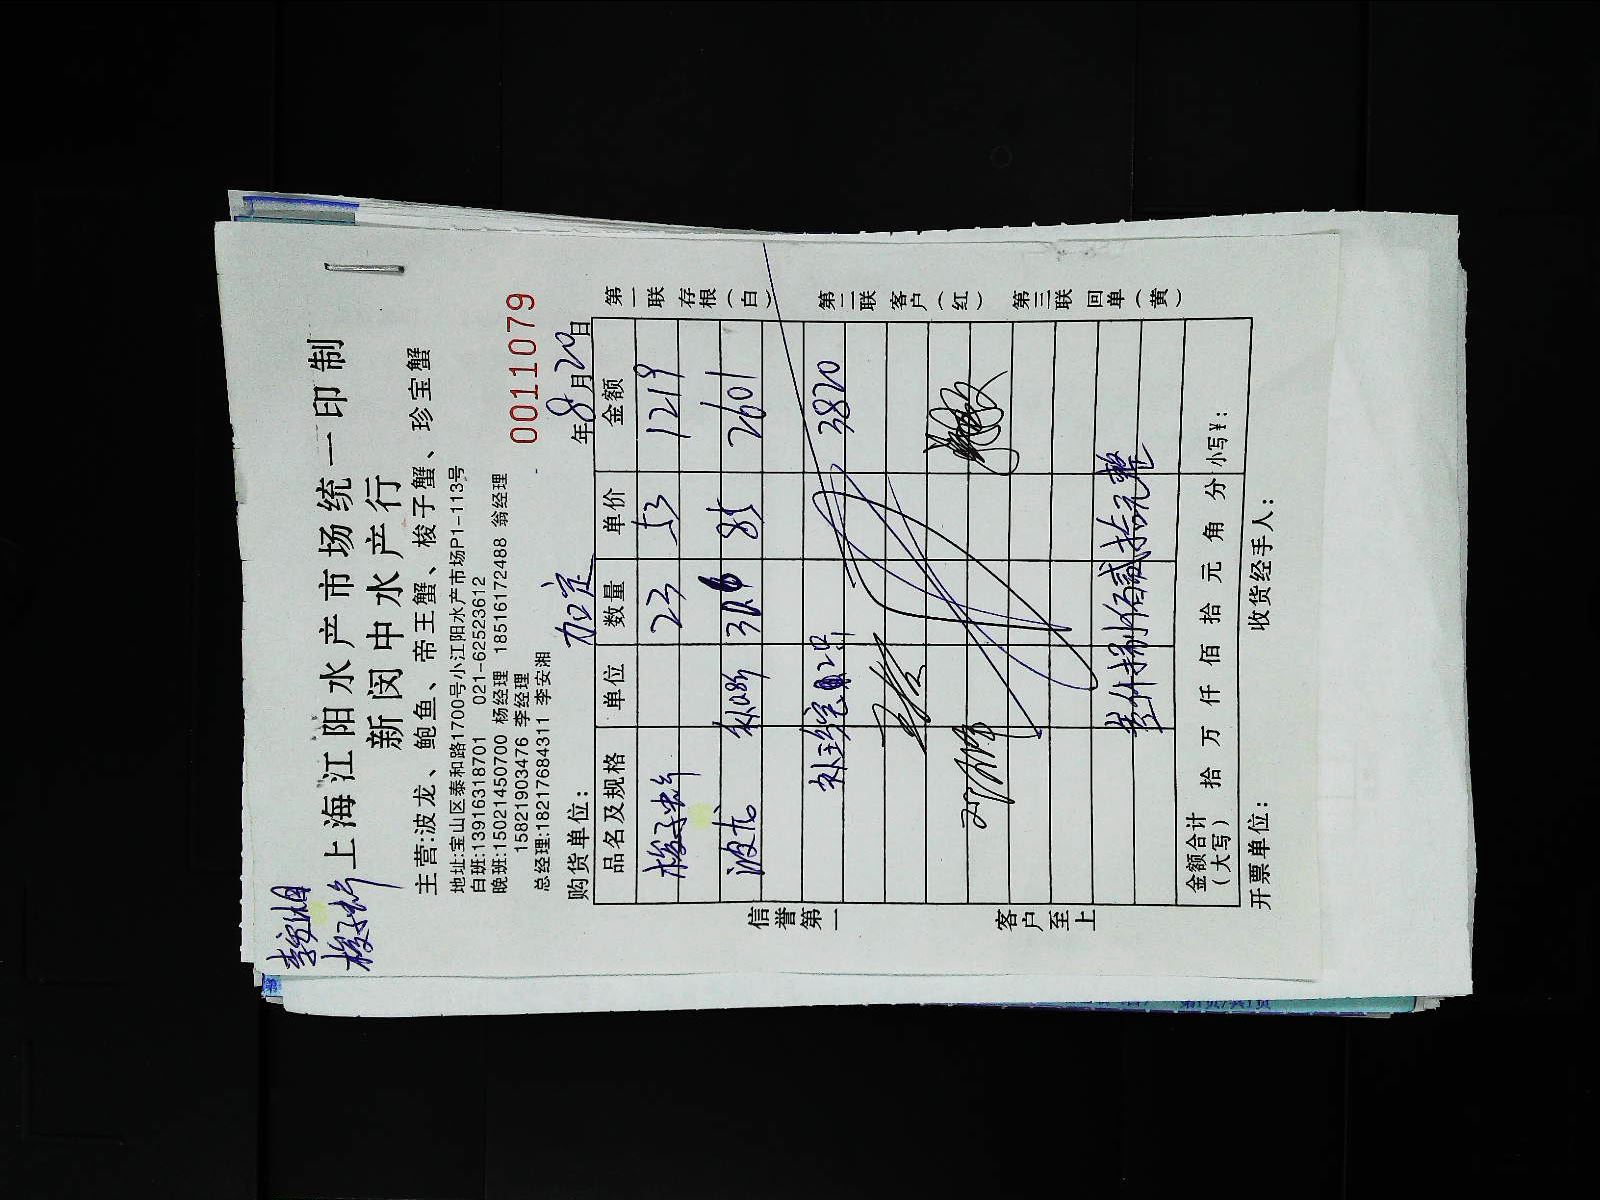 李安湘
梭子蟹
上海江阳水产市场统一印制
新闵中水产行
主营:波龙、鲍鱼、帝王蟹、梭子蟹、珍宝蟹
地址:宝山区泰和路1700号小江阳水产市场P1-113号
白班:13916318701 021-62523612
晚班:15021450700 杨经理 18516172488 翁经理
15821903476 李经理
总经理:18217684311 李安湘
0011079
购货单位: 加定 年8月20日
品名及规格 单位 数量 单价 金额
梭子蟹 23 53 1219
波龙 30.6 85 2601
3820
叁仟捌佰贰拾元整
金额合计(大写) 拾 万 仟 佰 拾 元 角 分 小写¥:
开票单位: 收货经手人:
信誉第一 客户至上
第一联存根(白) 第二联客户(红) 第三联回单(黄)